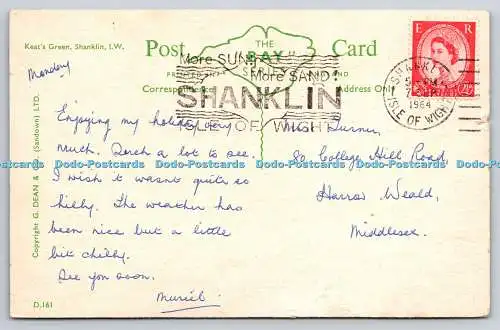 Keat's Green, Shanklin, I.W.
THE
Post "BAY" Card
SERIES
Correspondence Address Only
More SUN!
More SAND!
SHANKLIN
ISLE OF WIGHT
E R
SHANKLIN
1964
ISLE OF WIGHT
Monday
Enjoying my holiday very
much. Such a lot to see.
I wish it wasnt quite so
hilly. The weather has
been nice but a little
bit chilly.
See you soon.
Muriel.
Miss Turner
80 College Hill Road,
Harrow Weald,
Middlesex.
Copyright G. DEAN & (Sandown) LTD.
D.161
Dodo-Postcards Dodo-Postcards Dodo-Postcards Dodo-Postcards Dodo-Postcards